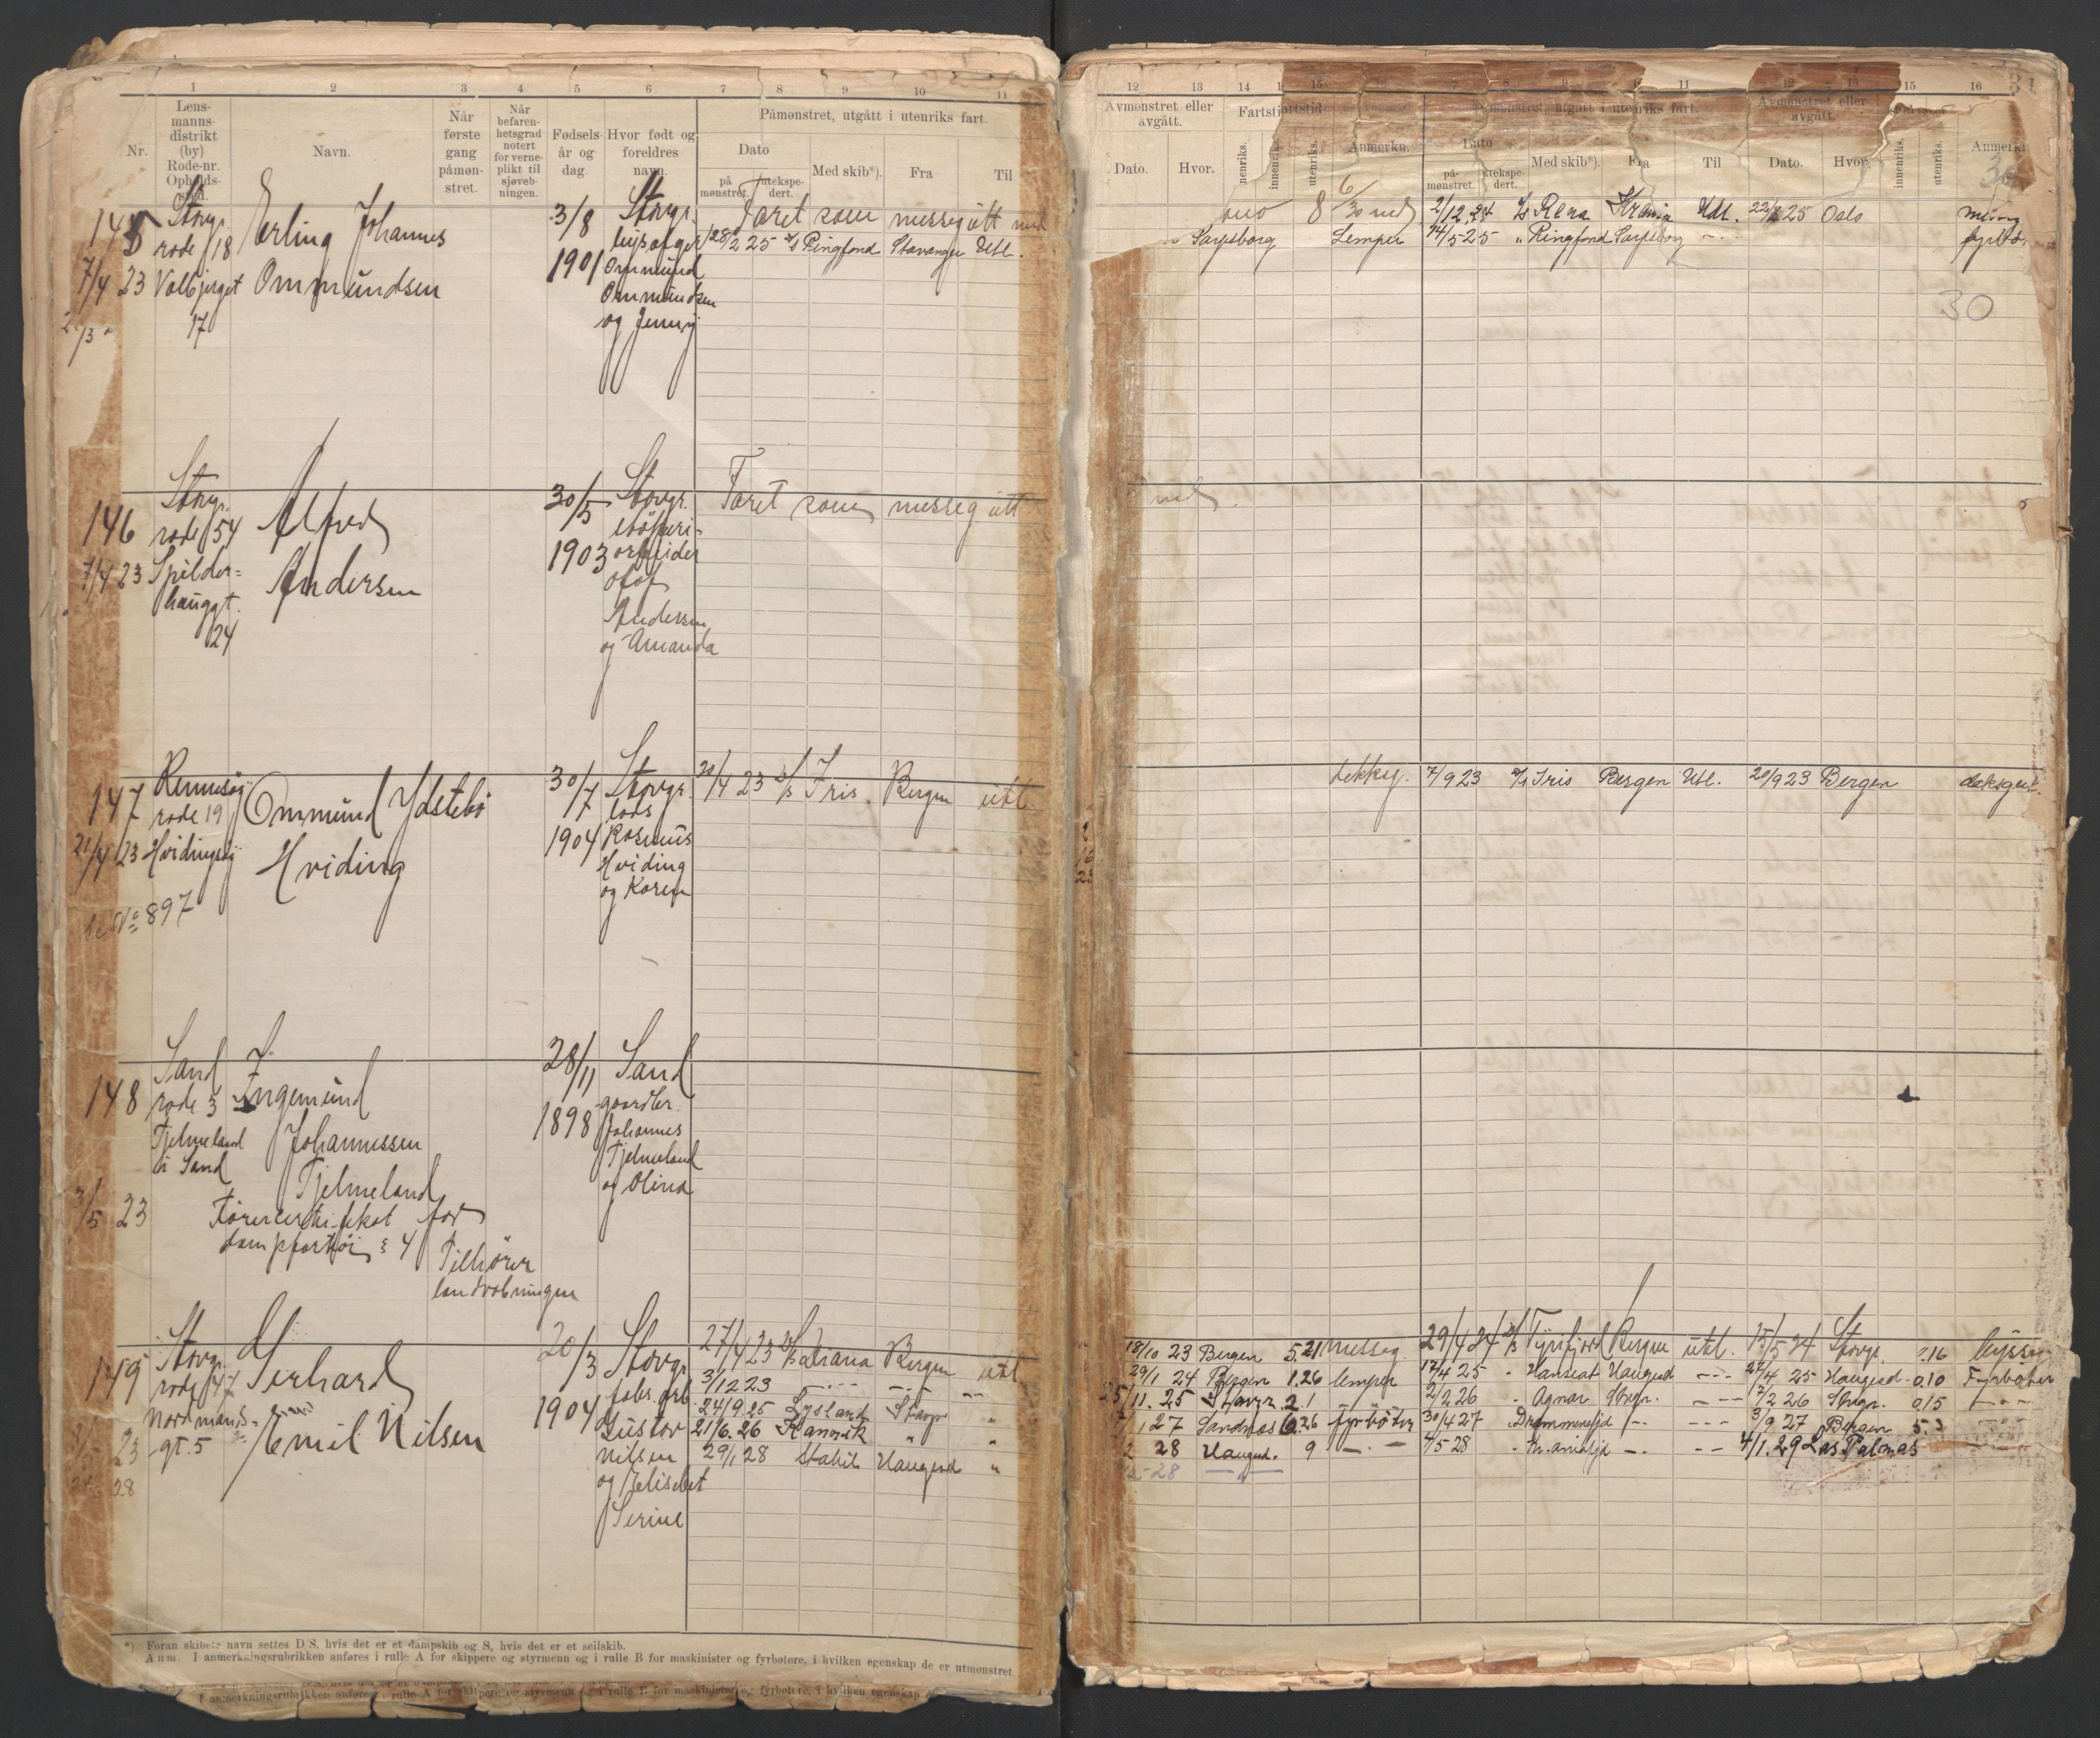 1 2 3 4 5 6 7 8 9 10 11
Nr.
Lens-
manns-
distrikt
(by)
Rode-nr.
Opholds-
sted.
Navn.
Når
første
gang
påmøn-
stret.
Når
befaren-
hetsgrad
notert
for verne-
plikt til
sjøveb-
ningen.
Fødsels-
år og
dag
Hvor født og
foreldres
navn.
Påmønstret, utgått i utenriks fart.
Dato
på
mønstret.
utekspe-
dert.
Med skib*).
Fra
Til
145
7/4 23
Stavgr.
rode 18
Valbjerget
17
Erling Johannes
Ommundsen
3/8
1901
Stavgr.
Ommund
Ommundsen
og Jenny
Faret som messegutt
28/2 25 Ringfond Stavanger Utl.
146
7/4 23
Stavgr.
rode 54
Spilder=
haugt.
24
Alfred
Andersen
30/5
1903
Stavgr.
arbeider
Olaf
Andersen
og Amanda
Faret som messegutt
147
21/4 23
Rennesøy
rode 19
Hvidingsøy
No 897
Ommund Ydstebø
Hviding
30/7
1904
Stavgr.
lods
Rasmus
Hviding
og Karen
20/4 23 D/S Iris Bergen utl.
148
3/5 23
Sand
rode 3
Tjelmeland
i Sand
Ingemund
Johannessen
Tjelmeland
Førercertifikat for
dampfartøi § 4
Tilhører
landvebningen
28/11
1898
Sand
gaardbr.
Johannes
Tjelmeland
og Olina
149
Stavgr.
rode 47
Nordmands=
gt. 5
Gerhard
Emil Nilsen
20/3
1904
Stavgr.
fabr. arb.
Gustav
Nilsen
og Elisabet
Serine
27/4 23 Bergen utl.
3/12 23
24/9 25 Lysland Stavgr. "
21/6. 26 " "
29/1 28 Haugesd "
*) Foran skibets navn settes D S, hvis det er et dampskib og S, hvis det er et seilskib.
Anm. I anmerkningsrubrikken anføres i rulle A for skippere og styrmenn og i rulle B for maskinister og fyrbøtere, i hvilken egenskap de er utmønstret
I anmerkningsrubrikken anføres i rulle A for skippere og styrmenn og i rulle B for maskinister og fyrbøtere, i hvilken egenskap
12 13 14 15 7 8 9 10 11 12 13 15 16
Avmønstret eller
avgått.
Dato.
Hvor.
Fartstid
innenriks.
utenriks.
Anmerkn.
Påmønstret, utgått i utenriks fart.
Dato
på-
mønstret.
utekspe-
dert.
Med skib*).
Fra
Til
Avmønstret eller
avgått.
Dato.
Hvor.
innenriks.
utenriks.
Anmerkn.
30
8 2/12 24 D/S Rena Krania Utl. 22/2 25 Oslo
Sarpsborg Lemper 14/5 25 " Ringfond Sarpsborg
30
dekksg. 7/9 23 D/S Iris Bergen Utl. 20/9 23 Bergen deksgut.
18/10 23 Bergen 5.21 messeg. 29/4 24 D/S Tyrifjord Bergen utl. 15/5 24 Stavgr. .16 byssg.
29/1 24 Bergen 1.26 lemper 17/4 25 " Hanseat Haugesd 27/4 25 Haugesd. 0.10 Fyrbøter
25/11. 25 Stavgr. 2.1 2/2 26 " Agnar Stvgr. 17/2 26 Stvgr. 0.15
27 Sandnes 6.26 fyrbøter 30/4 27 Drammensfjd 3/9 27 Bergen 5.3
28 Haugesd. 9 4/5 28 4/1. 29 Las Palmas
28